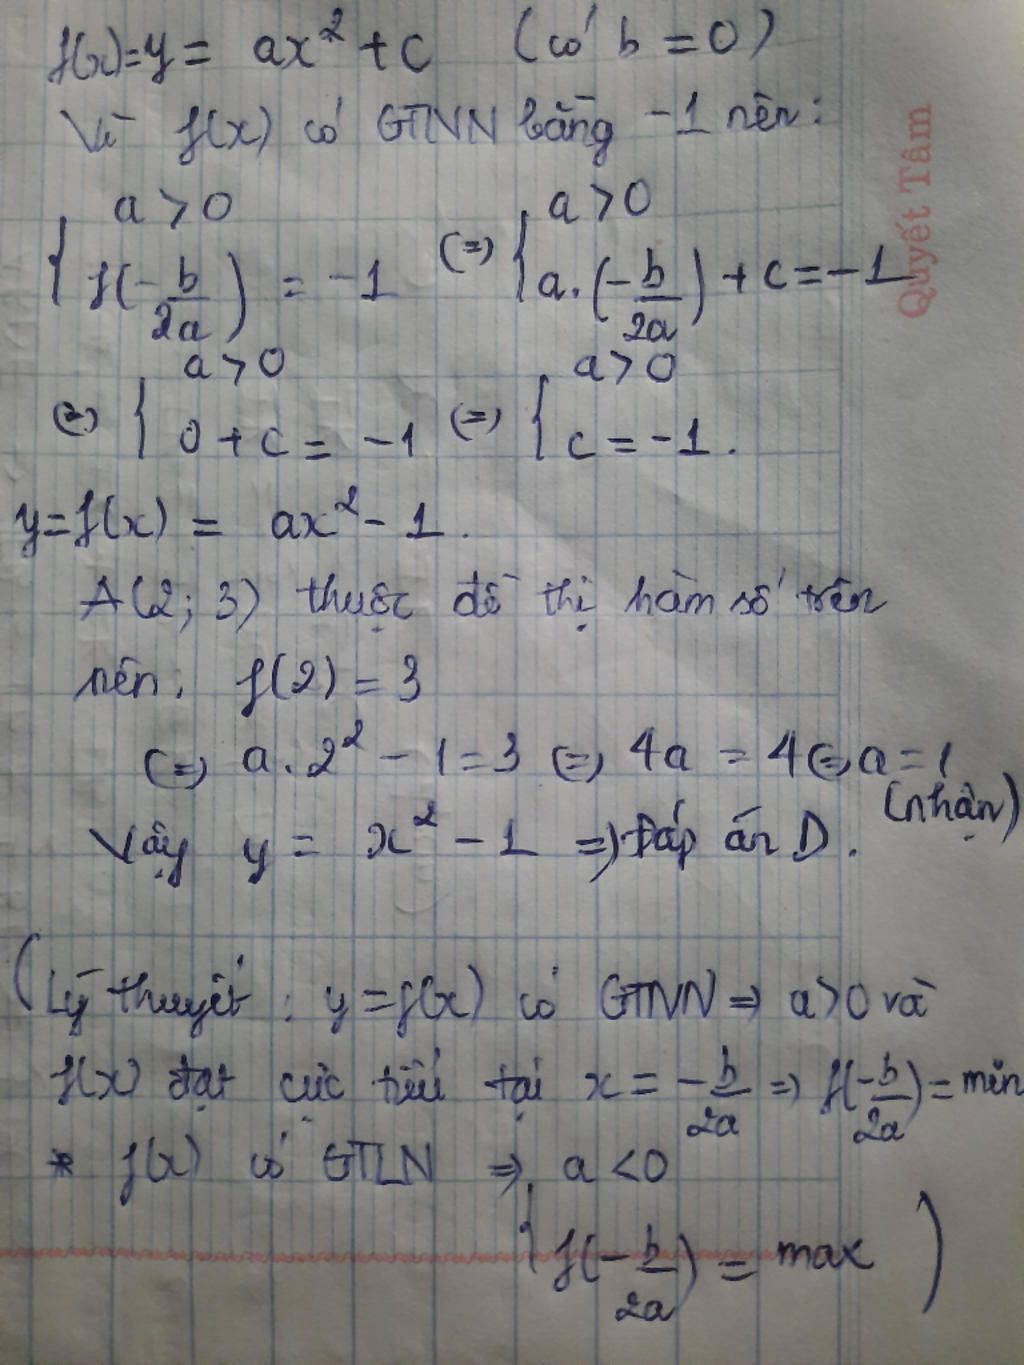 f(x)=y = ax² + c (có b = 0)
Vì f(x) có GTNN bằng -1 nên:
{ a > 0 ; f(-b/2a) = -1 (=) { a > 0 ; a.(-b/2a) + c = -1
(=) { a > 0 ; 0 + c = -1 (=) { a > 0 ; c = -1.
y=f(x) = ax² - 1.
A(2; 3) thuộc đồ thị hàm số trên
nên: f(2) = 3
(=) a.2² - 1 = 3 (=) 4a = 4 (=) a = 1
(nhận)
Vậy y = x² - 1 =) Đáp án D.
(Lý thuyết : y = f(x) có GTNN => a > 0 và
f(x) đạt cực tiểu tại x = -b/2a => f(-b/2a) = min
* f(x) có GTLN => { a < 0
f(-b/2a) = max )
Quyết Tâm